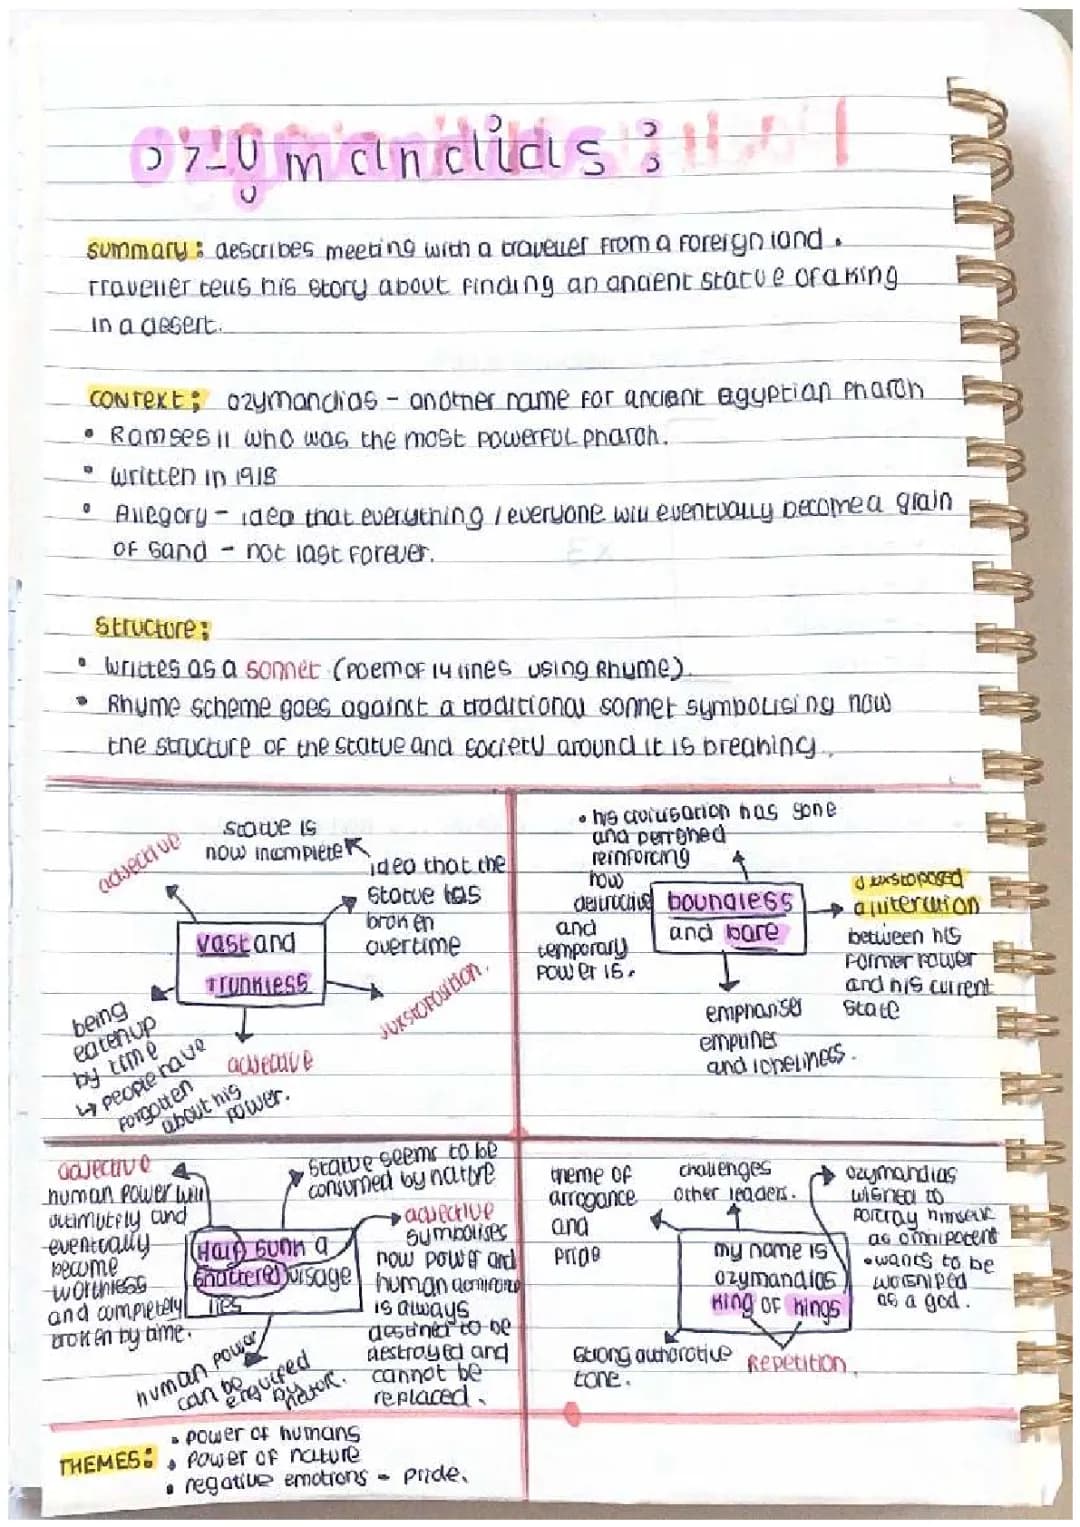 ozymandias :
summary: describes meeting with a traveller from a foreign land.
Traveller tells his story about finding an ancient statue of a king
in a desert.
CONTEXT; ozymandias - another name for ancient Egyptian Pharoh
• Ramses II who was the most powerful pharoh.
• written in 1918
• Allegory - idea that everything / everyone will eventually become a grain
of sand - not last forever.
Structure:
• writtes as a sonnet (poem of 14 lines using Rhyme).
• Rhyme scheme goes against a traditional sonnet symbolising how
the structure of the statue and society around it is breaking.
adjective
statue is
now incomplete
idea that the
statue has
broken
overtime
vast and
Trunkless
juxstoposition.
being
eaten up
by time
↳ people have
forgotten
about his
power.
adjective
• his civilisation has gone
and perrished
reinforcing
how
destructive
and
temporary
power is.
boundless
and bare
juxstoposed
alliteration
between his
former power
and his current
state
emphasises
emptines
and loneliness.
adjective
human power will
ultimately and
eventually
become
worthless
and completely
broken by time.
statue seems to be
consumed by nature
Half sunk a
shattered visage
lies
adjective
symbolises
how power and
human dominance
is always
destined to be
destroyed and
cannot be
replaced.
human power
can be
engulfed
by
nature.
theme of
arrogance
and
pride
challenges
other leaders.
ozymandias
wished to
portray himself
as omnipotent
• wants to be
worshiped
as a god.
my name is
ozymandias
King of kings
strong authorotive
tone.
Repetition.
THEMES:
• power of humans
• Power of nature
• negative emotions - pride.